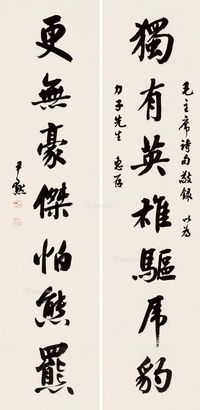 獨有英雄驅虎豹
毛主席詩句敬錄 以為
力子先生 惠存
更無豪傑怕熊羆
尹默